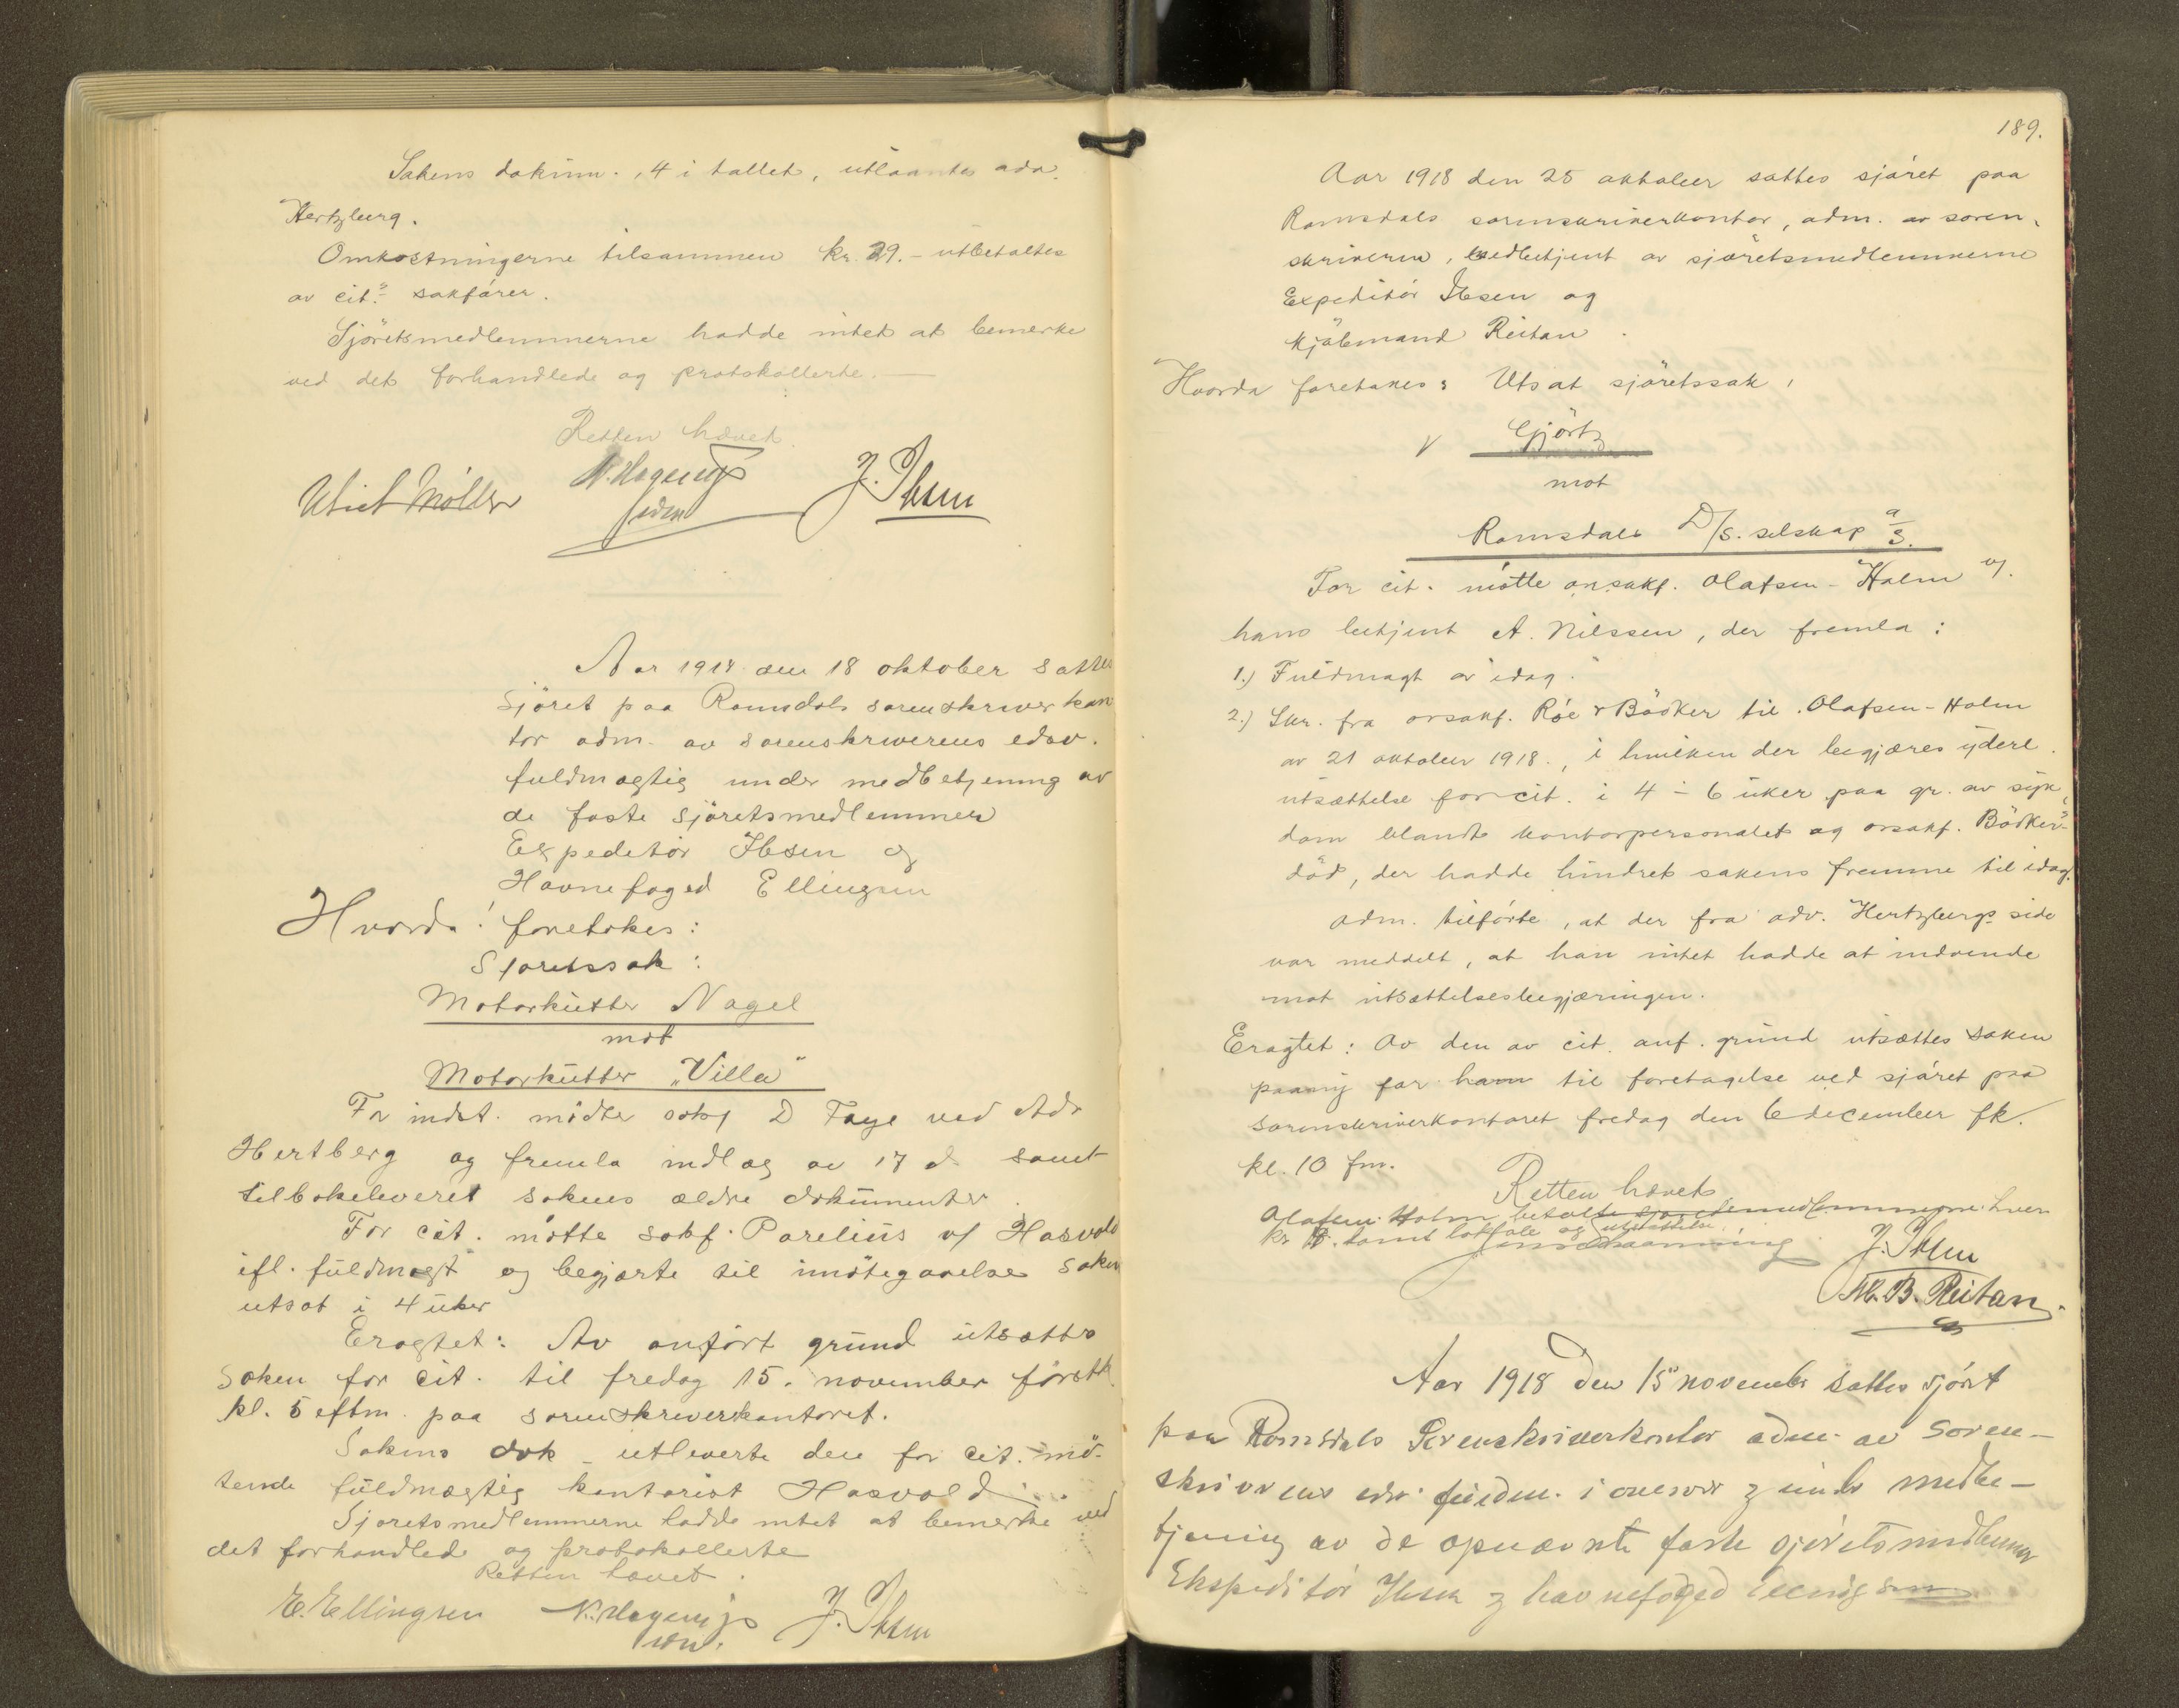 Sakens dokum. 4 i tallet, utlaantes adv.
Hertzberg.
Omkostningerne tilsammen kr. 29.- utbetaltes
av cit.s sakfører.
Sjöretsmedlemmerne hadde intet at bemerke
ved det forhandlede og protokollerte. —
Retten hævet.
Ulrich Møller J. Ibsen
Aar 1918 den 18 oktober sattes
Sjöret paa Romsdals sorenskriverkon
tor adm. av sorenskriverens edsv.
fuldmægtig under medbetjening av
de faste Sjöretsmedlemmer
Expeditör Ibsen og
Havnefoged Ellingsen
Hvorda foretokes:
Sjøretssak:
Motorkutter Nagel
mot
Motorkutter „Villa"
For indst. mødte sakf D Faye ved Adv
Hertberg og fremla indlæg av 17 ds samt
tilbakeleveret sakens ældre dokumenter.
For cit. møtte sakf. Parelius v/ Hasvold
ifl. fuldmagt og begjærte til imøtegaaelse saken
utsat i 4 uker
Eragtet: Av anført grund utsættes
Saken for cit. til fredag 15. november førstk.
kl. 5 eftm. paa sorenskriverkontoret.
Sakens dok utleverte den for cit. mø-
tende fuldmægtig kontorist Hasvold
Sjøretsmedlemmerne hadde intet at bemerke ved
det forhandlede og protokollerte
Retten hævet.
E. Ellingsen J. Ibsen
189.
Aar 1918 den 25 oktober sattes sjøret paa
Romsdals sorenskriverkontor, adm. av soren-
skriveren, medbetjent av sjøretsmedlemmerne
Expeditør Ibsen og
Kjøbmand Reitan.
Hvorda foretakes: Utsat sjøretssak,
Gjörtz
mot
Romsdals D/S. selskap a/s.
For cit. møtte orsakf. Olafsen-Holm v/
hans betjent A. Nilssen, der fremla:
1.) Fuldmagt av idag.
2.) Skr. fra orsakf. Røe & Bödker til Olafsen-Holm
av 21 oktober 1918., i hvilken der begjæres yderl.
utsættelse for cit. i 4 - 6 uker paa gr. av syk-
dom blandt kontorpersonalet og orsakf. Bödkers
död, der hadde hindret sakens fremme til idag.
Adm. tilførte, at der fra adv. Hertzbergs side
var meddelt, at han intet hadde at indvende
mot utsættelsesbegjæringen.
Eragtet: Av den av cit. anf. grund utsættes saken
paany for ham til foretagelse ved sjøret paa
sorenskriverkontoret fredag den 6 december fk.
kl. 10 fm.
Retten hævet
Olafsen-Holm betalte sjøretsmedlemmerne hver
kr samt lokfale og utskrift
J. Ibsen
M. B. Reitan.
Aar 1918 den 15 novembr sattes sjøret
paa Romsdals Sorenskriverkontor adm. av Soren-
skriverens edsv fuldm. i embr under medbe-
tjening av de opnævnte faste sjøretsmedlemmer
Ekspeditør Ibsen havnefoged Ellingsen